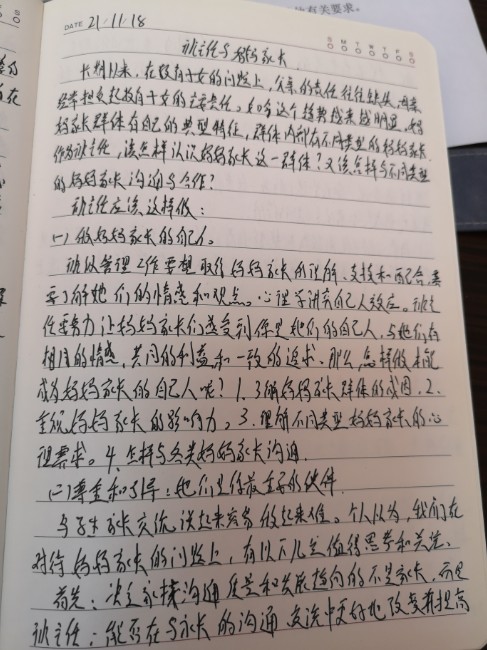 有关要求。
DATE 21.11.18
S M T W T F S
班主任与妈妈家长
长期以来，在教育子女的问题上，父亲的责任往往缺位，母亲
经常担负起教育子女的主要责任。如今这个趋势越来越明显，妈
妈家长群体有自己的典型特征，群体内部有不同类型的妈妈家长
作为班主任，该怎样认识妈妈家长这一群体？又该怎样与不同类型
的妈妈家长沟通与合作？
班主任应该这样做：
(一) 做妈妈家长的自己人。
班级管理工作要想取得妈妈家长的理解、支持和配合，需
要了解她们的情感和观点。心理学讲究自己人效应。班主
任要努力让妈妈家长们感受到你是她们的自己人，与她们有
相同的情感，共同的利益和一致的追求。那么，怎样做才能
成为妈妈家长的自己人呢？1.了解妈妈家长群体的成因。2.
重视妈妈家长的影响力。3.理解不同类型妈妈家长的心
理需求。4.怎样与各类妈妈家长沟通
(二)尊重和引导：她们是你最重要的伙伴
与学生家长交流说起来容易做起来难。个人认为，我们在
对待妈妈家长的问题上，有以下几点值得思考和关注。
首先：决定家校沟通质量和发展趋向的不是家长，而是
班主任；能否在与家长的沟通交流中更好地改变并提高